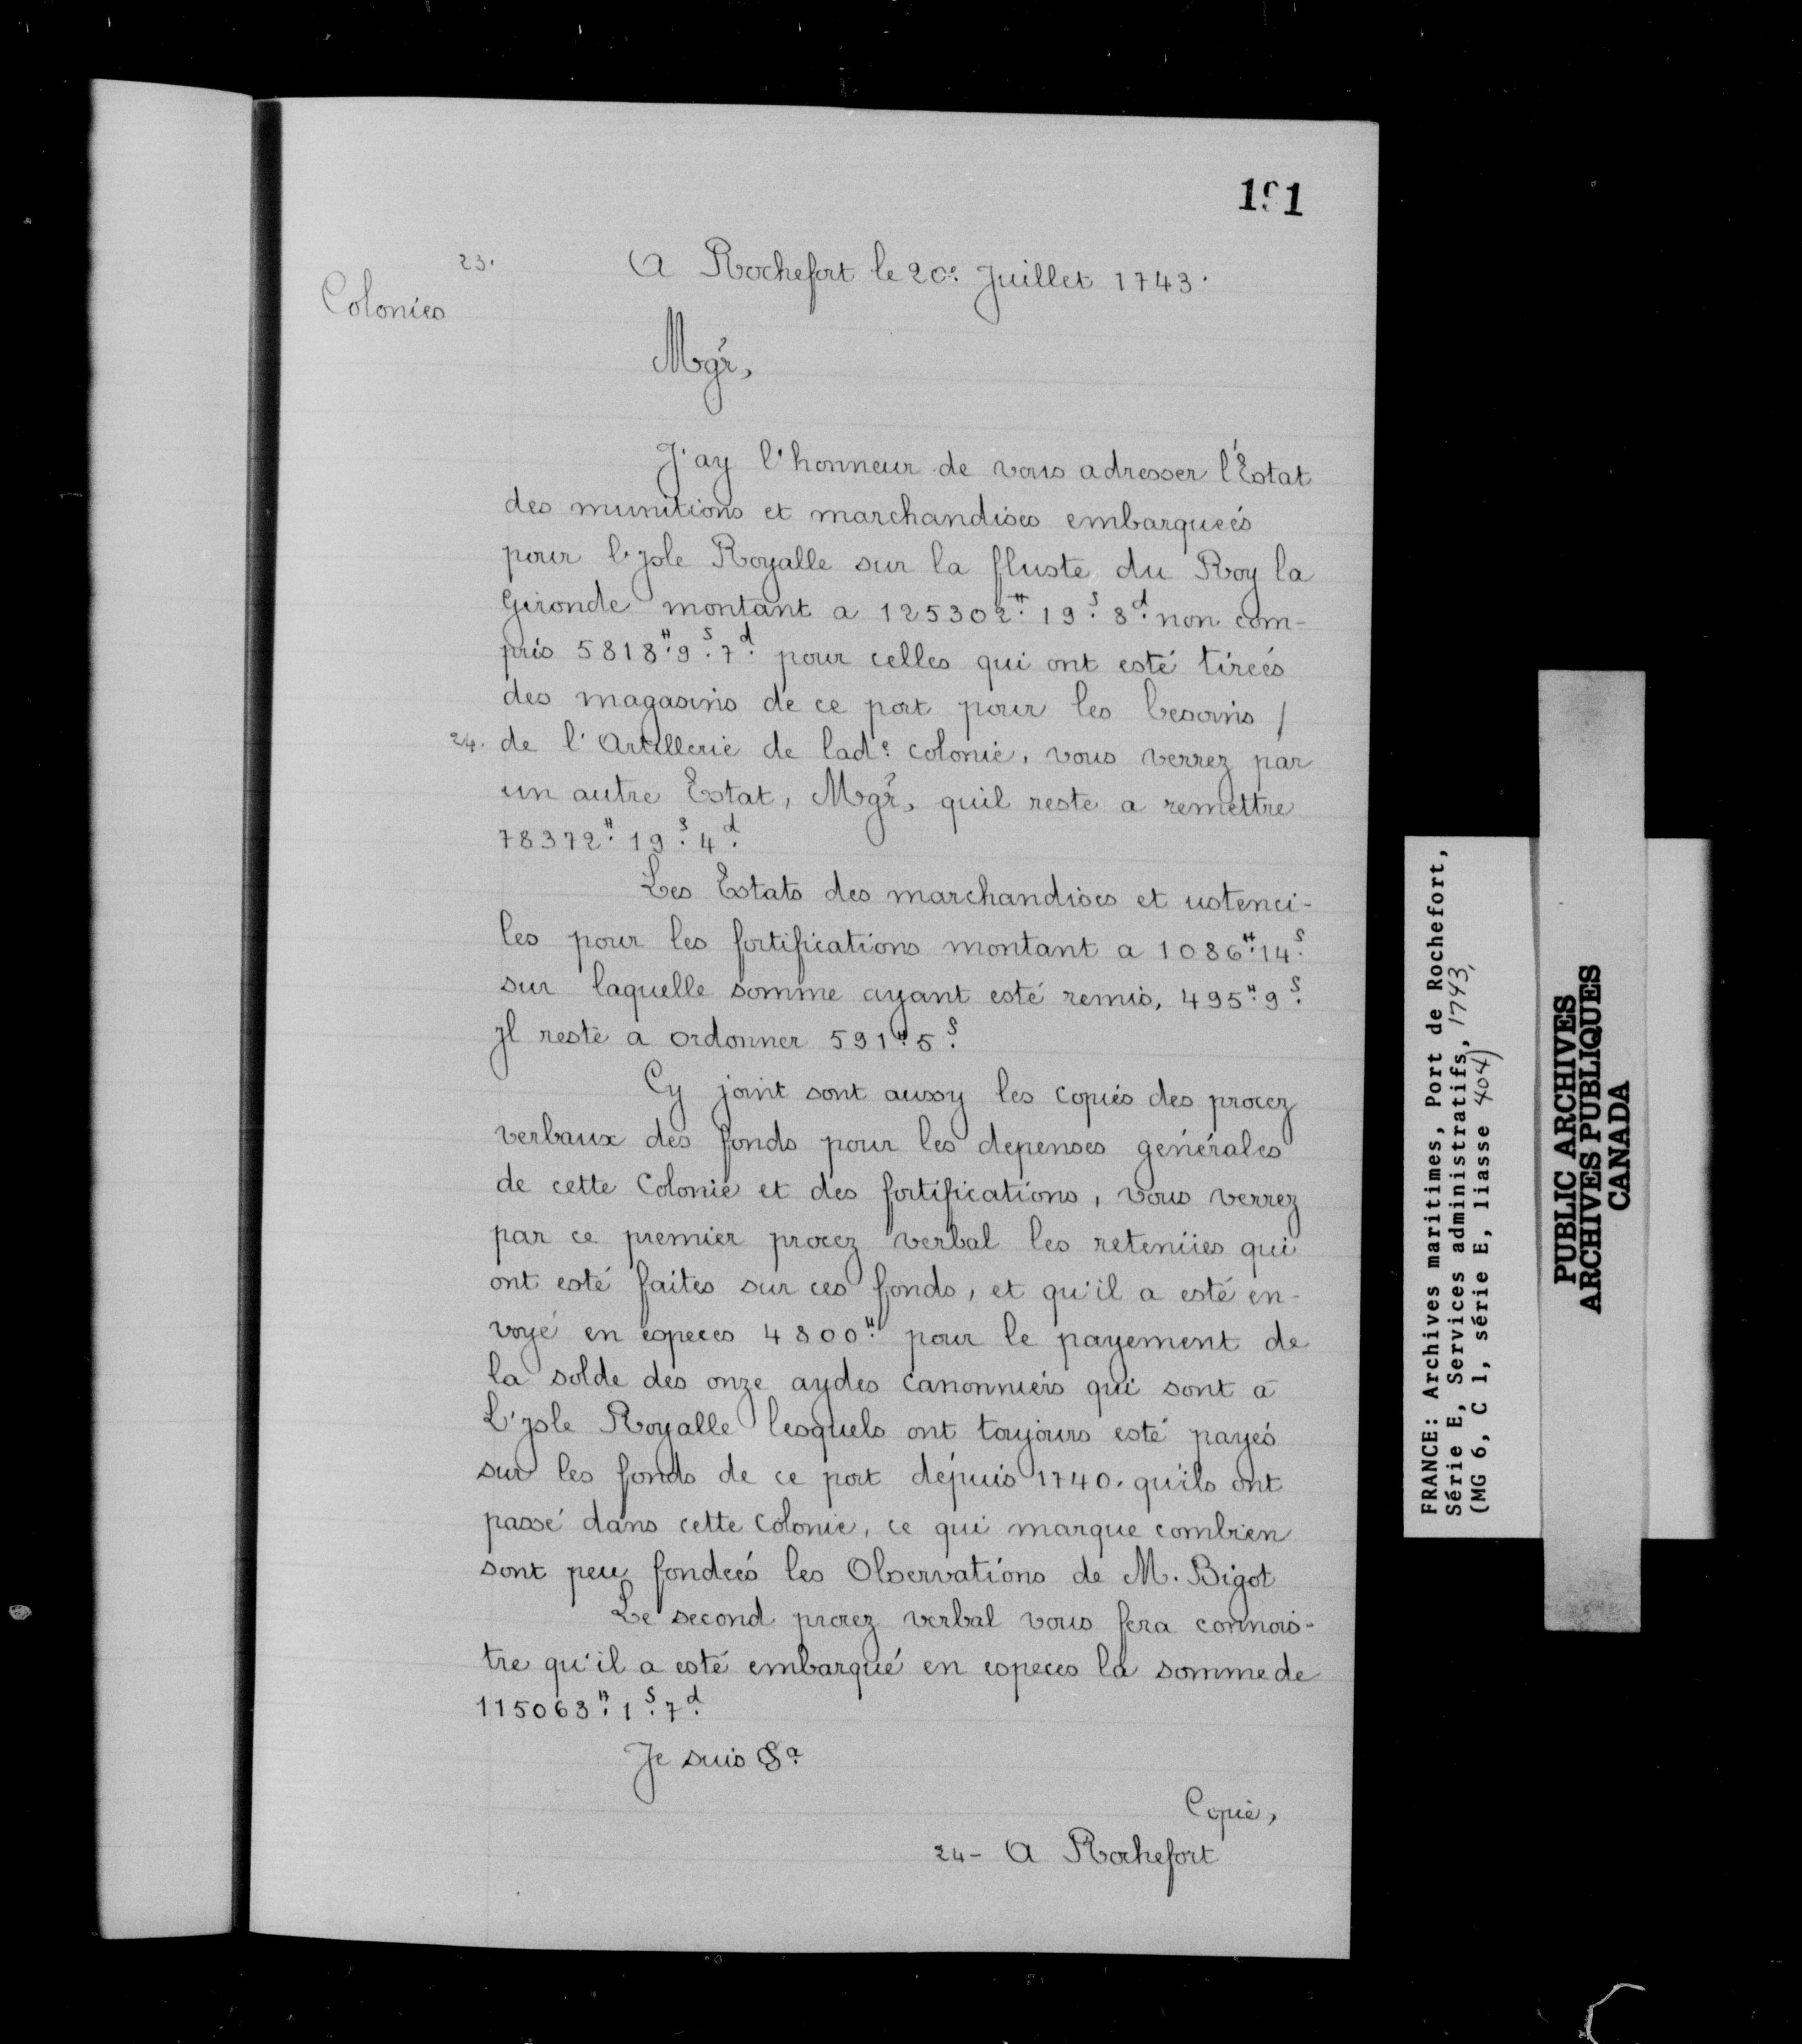 191
23.
A Rochefort le 20e. Juillet 1743.
Colonies
Mgr,
J'ay l'honneur de vous adresser l'Estat
des munitions et marchandises embarqueés
pour l'jsle Royalle sur la fluste du Roy la
Gironde montant a 125302# 19s 8d non com-
pris 5818# 9s 7d pour celles qui ont esté tireés
des magasins de ce port pour les besoins /
24. de l'Artillerie de lade. colonie, vous verrez par
un autre Estat, Mgr, quil reste a remettre
78372# 19s 4d
Les Estats des marchandises et ustenci-
les pour les fortifications montant a 1086# 14s
sur laquelle somme ayant esté remis, 495# 9s
jl reste a ordonner 591# 5s
Cy joint sont aussy les copies des procez
verbaux des fonds pour les depenses genérales
de cette Colonie et des fortifications, vous verrez
par ce premier procez verbal les retenües qui
ont esté faites sur ces fonds, et qu'il a esté en-
voyé en especes 4800# pour le payement de
la solde des onze aydes canonniers qui sont à
L'jsle Royalle lesquels ont toujours esté payés
sur les fonds de ce port depuis 1740. qu'ils ont
passé dans cette Colonie, ce qui marque combien
sont peu fondeés les Observations de M. Bigot
Le second procez verbal vous fera connois-
tre qu'il a esté embarqué en especes la somme de
115063# 1s 7d
Je suis &a
Copie,
24- A Rochefort
FRANCE: Archives maritimes, Port de Rochefort,
Série E, Services administratifs, 1743,
(MG 6, C 1, série E, liasse 404)
PUBLIC ARCHIVES
ARCHIVES PUBLIQUES
CANADA